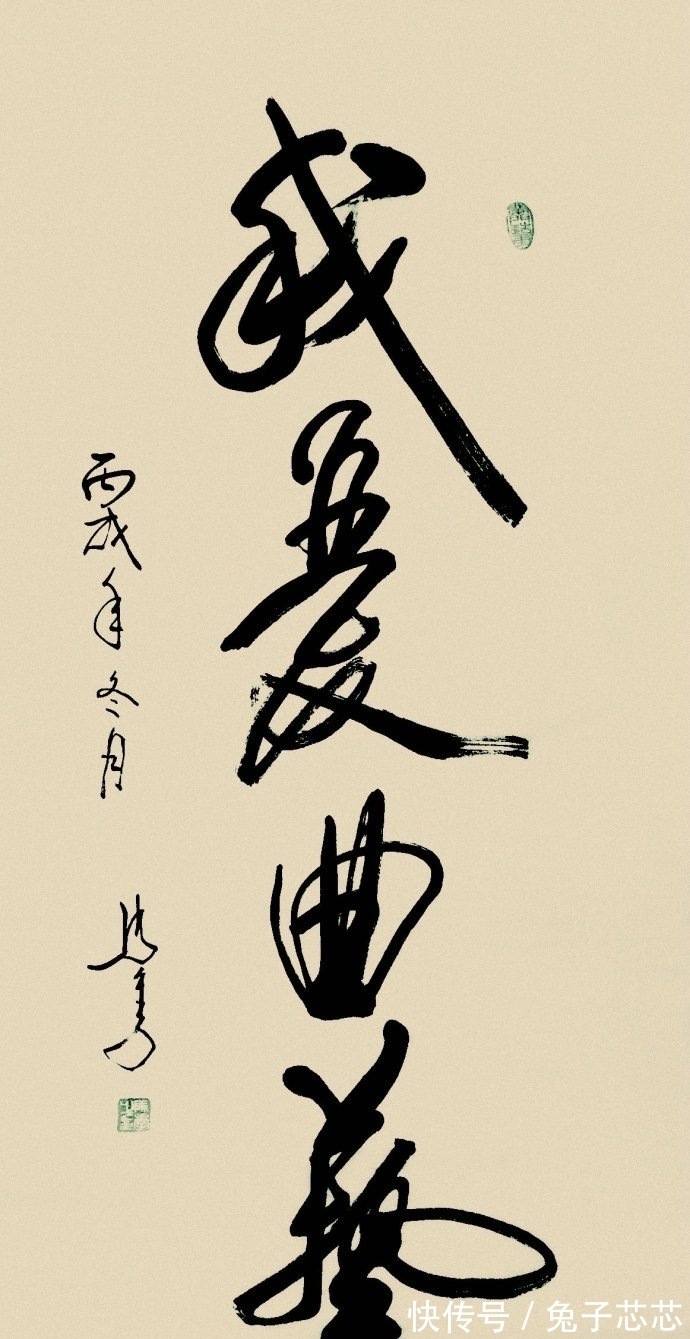 我爱曲藝
丙戌年冬月
快传号 / 兔子芯芯